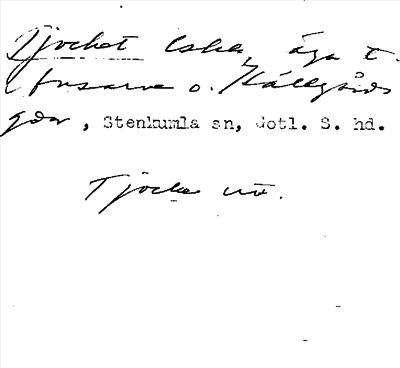 Tjocket Lska, äga t.
fusarve o. Källgårds
gdar, Stenkumla sn, Gotl. S. hd.
Tjocka uö.